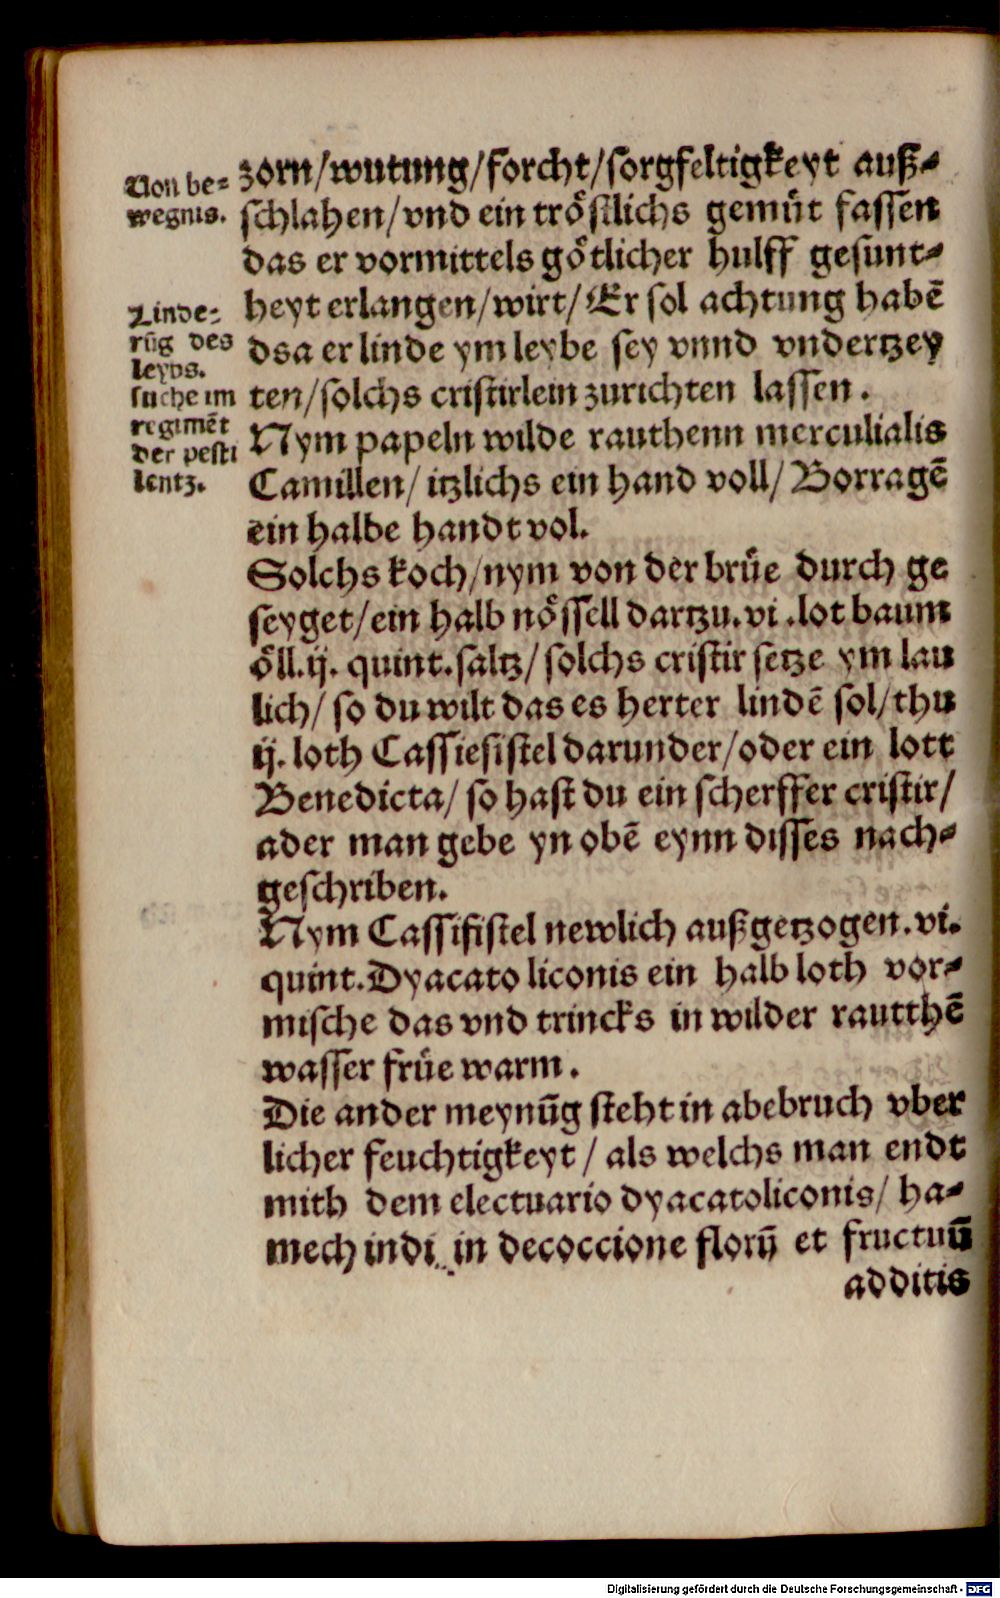 Von be-
wegnis.
Linde-
rūg des
leybs.
suche im
regimēt
der pesti
lentz.
zorn/wutung/forcht/sorgfeltigkeyt auß-
schlahen/vnd ein trőstlichs geműt fassen
das er vormittels gőtlicher hulff gesunt-
heyt erlangen/wirt/Er sol achtung habē
dsa er linde ym leybe sey vnnd vndertzey
ten/solchs cristirlein zurichten lassen.
Nym papeln wilde rauthenn merculialis
Camillen/ itzlichs ein hand voll/ Borragē
ein halbe handt vol.
Solchs koch/nym von der brűe durch ge
seyget/ein halb nőssell dartzu.vi.lot baum
őll.ij. quint.saltz/ solchs cristir setze ym lau
lich/ so du wilt das es herter lindē sol/thu
ij. loth Cassiesistel darunder/oder ein lott
Benedicta/ so hast du ein scherffer cristir/
ader man gebe yn obē eynn disses nach-
geschriben.
Nym Cassifistel newlich außgetzogen.vi.
quint.Dyacato liconis ein halb loth vor-
mische das vnd trincks in wilder rautthē
wasser frűe warm.
Die ander meynūg steht in abebruch vber
licher feuchtigkeyt / als welchs man endt
mith dem electuario dyacatoliconis/ ha-
mech indi in decoccione florū et fructuū
additis
Digitalisierung gefördert durch die Deutsche Forschungsgemeinschaft - DFG